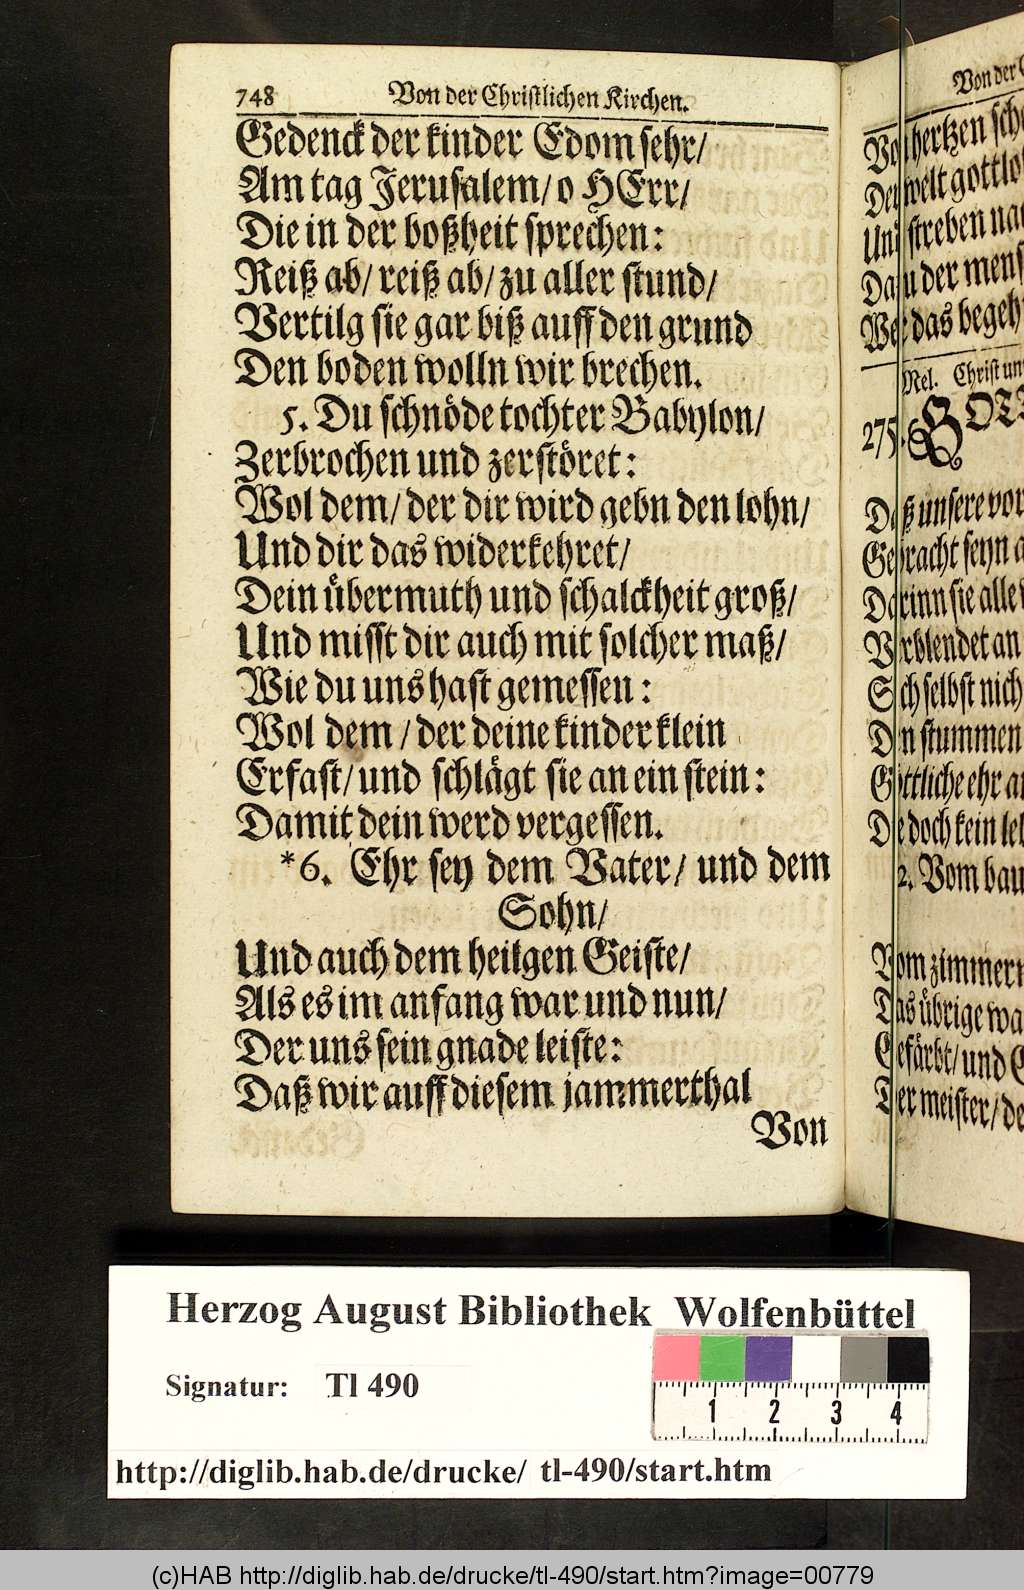 748 Von der Christlichen Kirchen.
Gedenck der kinder Edom sehr/
Am tag Jerusalem/ o HErr/
Die in der boßheit sprechen:
Reiß ab/ reiß ab/ zu aller stund/
Vertilg sie gar biß auff den grund
Den boden wolln wir brechen.
5. Du schnöde tochter Babylon/
Zerbrochen und zerstöret:
Wol dem/ der dir wird gebn den lohn/
Und dir das widerkehret/
Dein übermuth und schalckheit groß/
Und misst dir auch mit solcher maß/
Wie du uns hast gemessen:
Wol dem/ der deine kinder klein
Erfast/ und schlägt sie an ein stein:
Damit dein werd vergessen.
*6. Ehr sey dem Vater/ und dem
Sohn/
Und auch dem heilgen Geiste/
Als es im anfang war und nun/
Der uns sein gnade leiste:
Daß wir auff diesem jammerthal
Von
Von der
hertzen
welt
streben
der
das
Mel. Christ
275.
unsere
seyn
sie alle
an
selbst
stummen
ehr
doch kein
2. Vom
zimmer
übrige
und
meister/
Herzog August Bibliothek Wolfenbüttel
Signatur: Tl 490
1 2 3 4
http://diglib.hab.de/drucke/ tl-490/start.htm
(c)HAB http://diglib.hab.de/drucke/tl-490/start.htm?image=00779